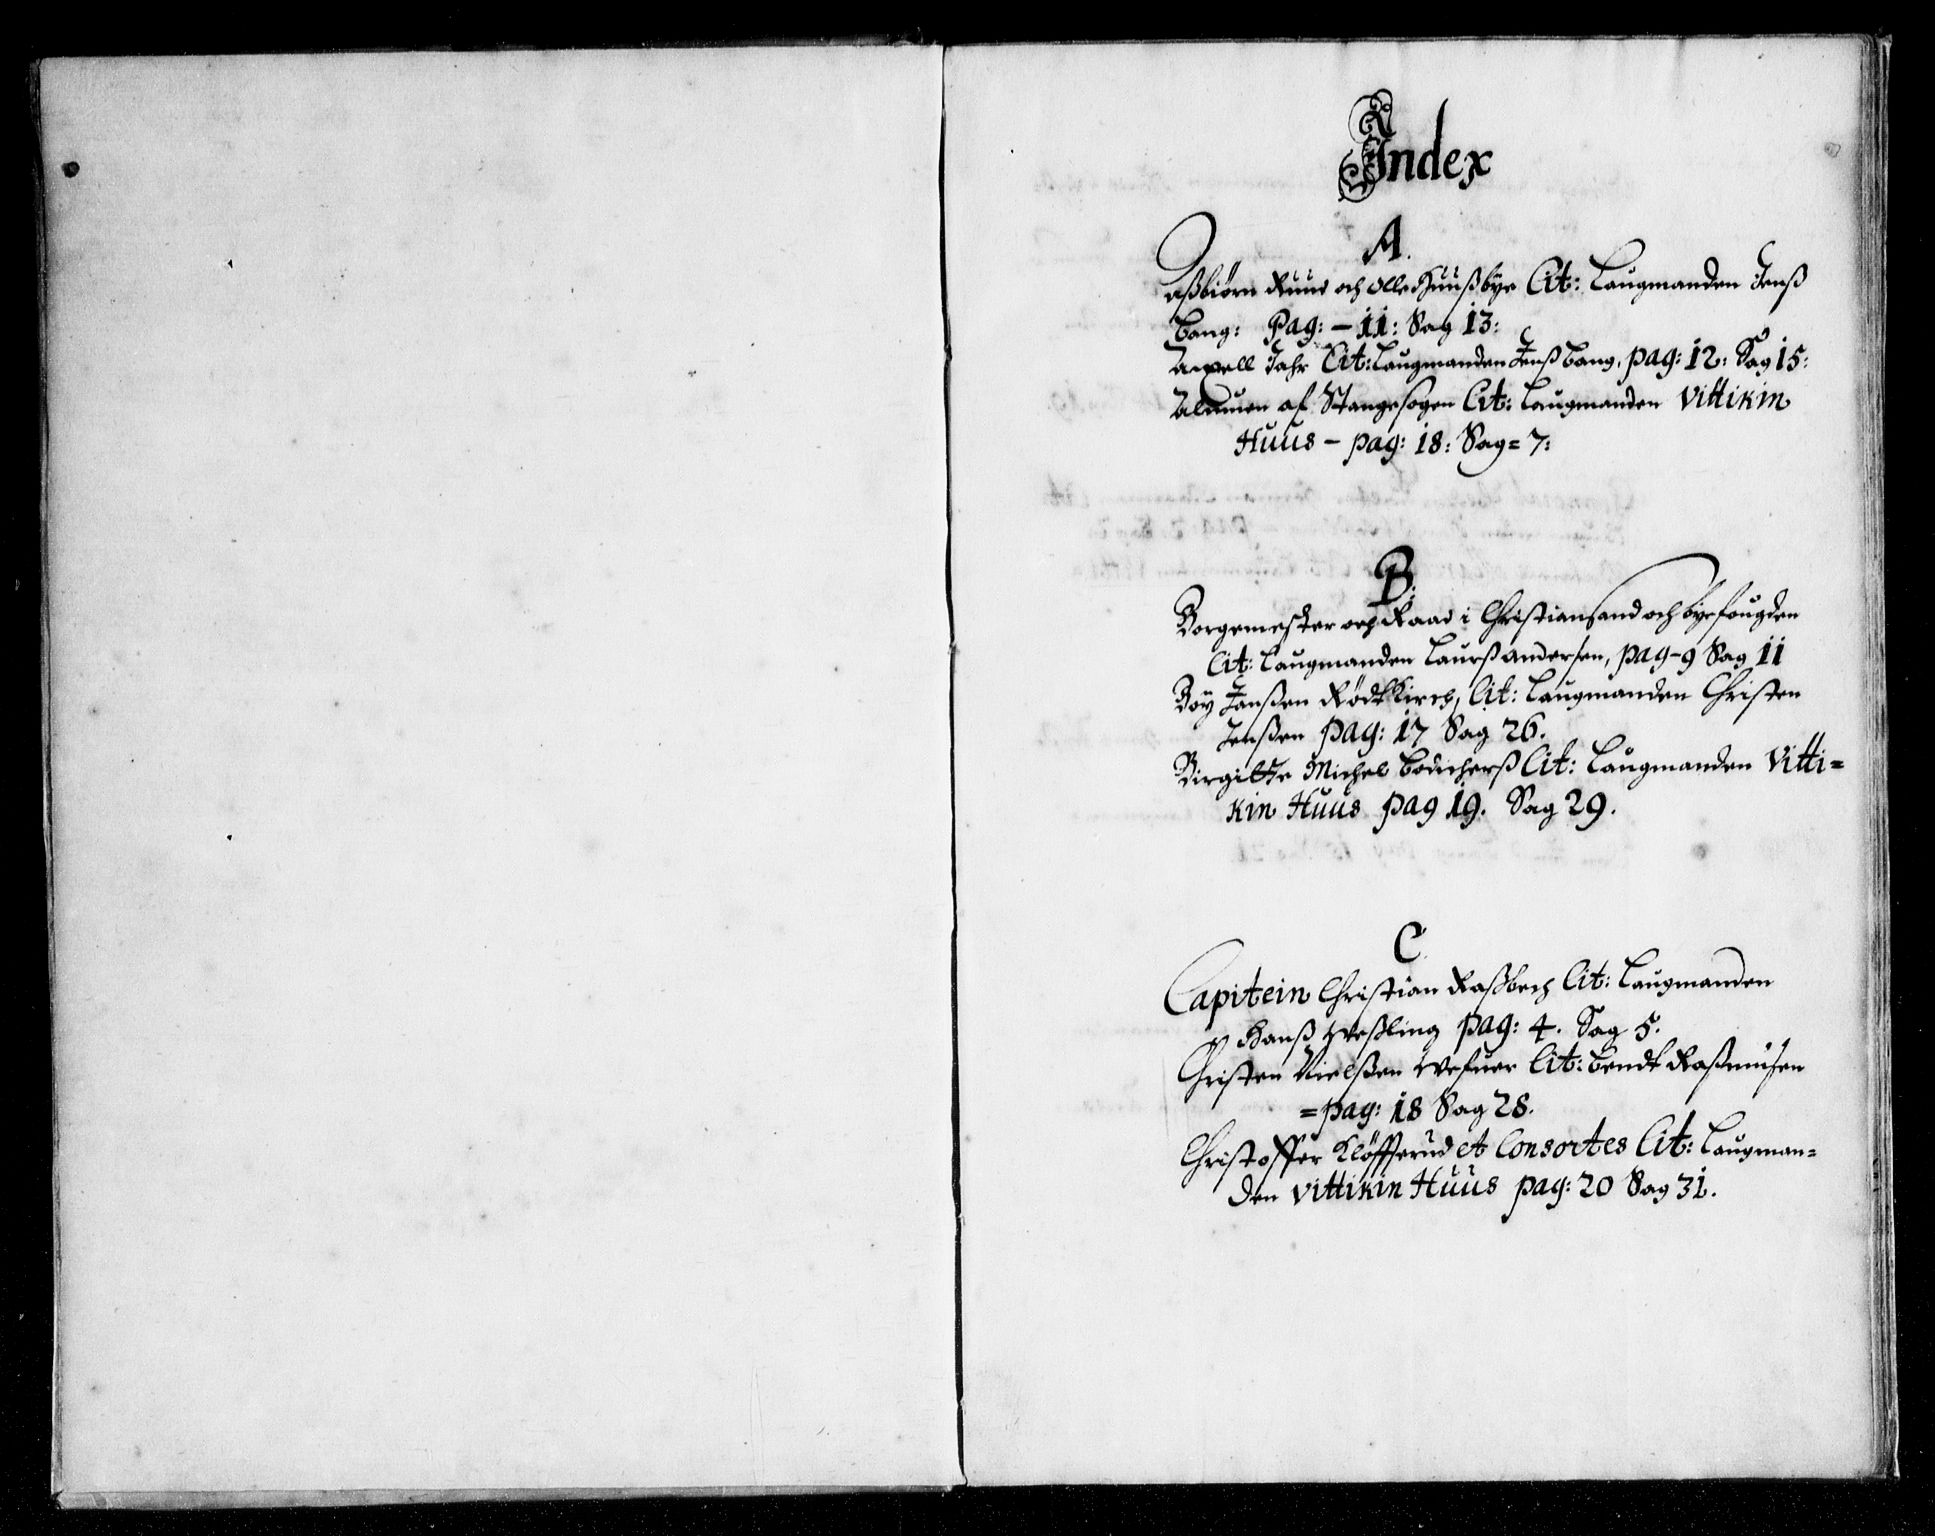 Index
A.
Aßbiörn Ruud och Olle Huußbye Cit: Laugmanden Jenß
Bang: Pag: – 11: Sag 13:
Axell Jahr Cit: Laugmanden Jenß Bang, pag: 12: Sag 15:
Almuen af Stangesogen Cit: Laugmanden Vittikin
Huus – pag: 18: Sag = 7:
B:
Borgemester och Raad i Christiansand och byefougden
Cit: Laugmanden Laurß Andersen, pag – 9 Sag 11
Boÿ Janßen Rödtkirch, Cit: Laugmanden Christen
Jenßen pag: 17 Sag 26.
Birgitte Michel Bödicherß Cit: Laugmanden Vitti=
kin Huus pag 19. Sag 29.
C.
Capitein Christian Raßbech Cit: Laugmanden
Hanß Weßling pag: 4. Sag 5.
Christen Nielßen Wefuer Cit: Bendt Raßmusen
= pag: 18 Sag 28.
Christoffer Klöfferud et Consortes Cit: Laugman=
den Vittikin Huus pag: 20 Sag 31.